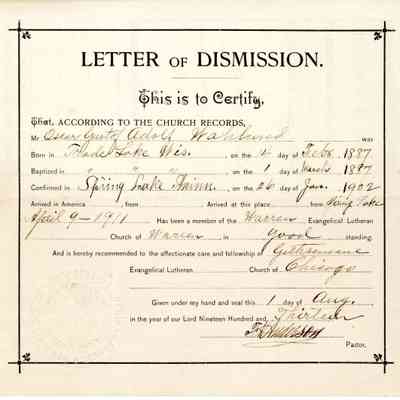 LETTER OF DISMISSION.
This is to Certify,
That, ACCORDING TO THE CHURCH RECORDS,
Mr. Oscar Gustof Adolf Wahlund was
Born in Trade Lake Wis. , on the 12 day of Febr. 1887
Baptized in " " " , on the 1 day of March 1887
Confirmed in Spring Lake Minn. , on the 26 day of Jan. 1902
Arrived in America from Arrived at this place from Spring Lake
April 9-1911 Has been a member of the Warren Evangelical Lutheran
Church of Warren in good standing.
And is hereby recommended to the affectionate care and fellowship of Gethsemane
Evangelical Lutheran Church of Chicago
Given under my hand and seal this 1 day of Aug.
in the year of our Lord Nineteen Hundred and Thirteen
Pastor.